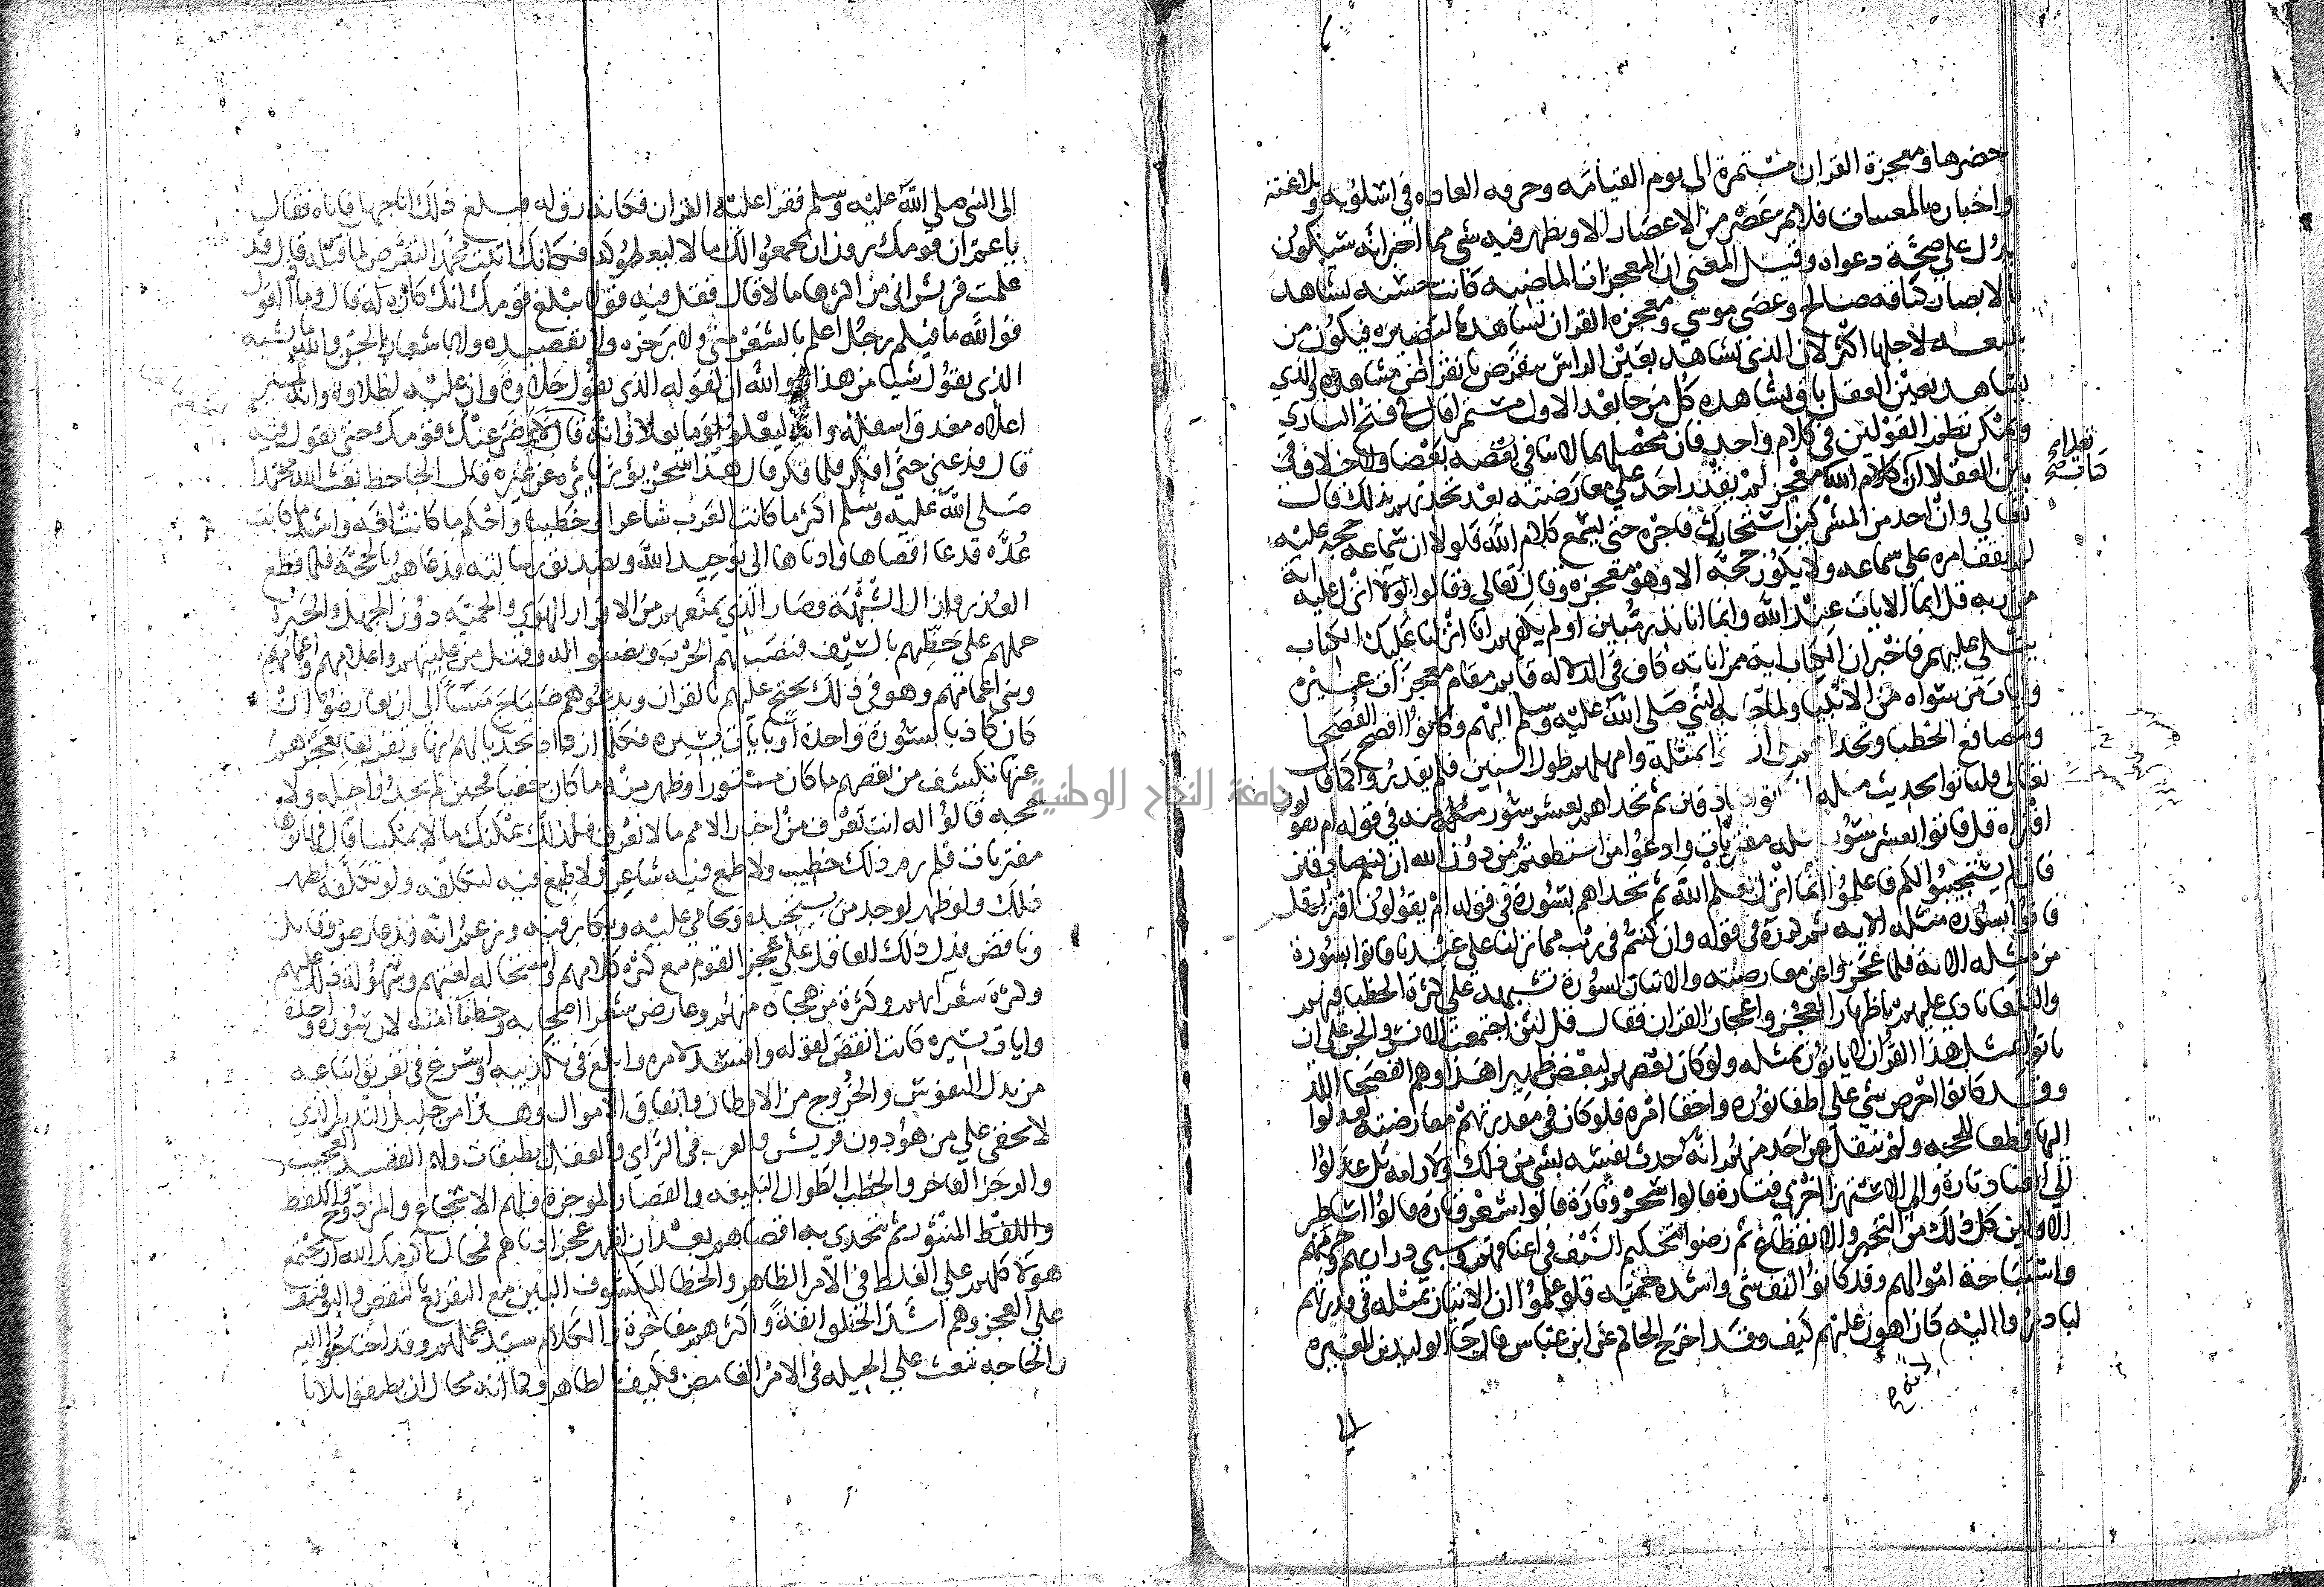 حضرها ومعجزة القران مستمرة الى يوم القيامه وخرقه العاده في اسلوبه وبلاغته
واخباره بالمغيبات فلا يمر عصر من الاعصار الا ويظهر فيه شي مما اخبر انه سيكون
يدل على صحة دعواه وقيل المعنى ان المعجزات الماضيه كانت حسيه تشاهد
بالابصار كناقه صالح وعصى موسى ومعجزه القران تشاهد بالبصيره فيكون من
يتبعه لاجلها اكثر لان الذي يشاهد بعين الراس ينقرض بانقراض مشاهده والذي
يشاهد بعين العقل باق يشاهده كل من جا بعد الاول مستمرا قال في فتح الباري
ويمكن نظم القولين في كلام واحد فان محصلهما لا ينافي بعضه بعضا ولا خلاف
بين العقلا ان كلام الله معجز لم يقدر احد على معارضته بعد تحديهم بذلك قال
تعالى وان احد من المشركين استجارك فاجره حتى يسمع كلام الله فلولا ان سماعه حجه عليه
لم يقف امره على سماعه ولا يكون حجة الا وهو معجزه وقال تعالى وقالوا لولا انزل عليه اية
من ربه قل انما الايات عند الله وانما انا نذير مبين اولم يكفهم انا انزلنا عليك الكتاب
يتلى عليهم فاخبر ان الكتاب اية من اياته كاف في الدلاله قايم مقام معجزات غيره
وايات من سواه من الانبيا ولما جا به النبي صلى الله عليه وسلم اليهم وكانوا افصح الفصحا
ومصاقع الخطبا وتحداهم على ان بمثله وامهلهم طول السنين فلم يقدروا كما قال
تعالى فلياتوا بحديث مثله ان صادقين ثم تحداهم بعشر سور مثله منه في قوله ام يقولون
افتراه قل فاتوا بعشر سور مثله مفتريات وادعوا من استطعتم من دون الله ان كنتم صادقين
فان لم يستجيبوا لكم فاعلموا انما انزل بعلم الله ثم تحداهم بسورة في قوله ام يقولون افتراه قل
فاتوا بسورة مثله الايه ثم كرره في قوله وان كنتم في ريب مما نزلنا على عبدنا فاتوا بسورة
من مثله الاية فلما عجزوا عن معارضته والاتيان بسورة تشبهه على كثرة الخطبا فيهم
والبلغا نادى عليهم باظهار العجز واعجاز القران فقال قل لئن اجتمعت الانس والجن على ان
ياتوا بمثل هذا القران لا ياتون بمثله ولو كان بعضهم لبعض ظهيرا هذا وهم الفصحا اللد
وقد كانوا احرص شي على اطفا نوره واخفا امره فلو كان في مقدرتهم معارضته لعدلوا
اليها قطعا للحجه ولم ينقل عن احد منهم انه حدث نفسه بشي من ذلك ولا رامه بل عدلوا
الى العناد تارة والى الاستهزا اخرى فتارة قالوا سحر وتارة قالوا شعر وتارة قالوا اساطير
الاولين كل ذلك من التحير والانقطاع ثم رضوا بتحكيم السيف في اعناقهم وسبي ذراريهم وحرمهم
واستباحة اموالهم وقد كانوا انف شي واشده حميه فلو علموا ان الاتيان بمثله في قدرتهم
لبادروا اليه كان اهون عليهم كيف وقد اخرج الحاكم عن ابن عباس قال جا الوليد بن المغيره
الى النبي صلى الله عليه وسلم فقرا عليه القران فكانه رق له فبلغ ذلك ابا جهل فاتاه فقال
يا عم ان قومك يريدون ان يجمعوا لك مالا ليعطوكه فانك اتيت محمدا لتعرض لما قبله قال قد
علمت قريش اني من اكثرها مالا قال فقل فيه قولا يبلغ قومك انك كاره له قال وما اقول
فوالله ما فيكم رجل اعلم بالشعر مني ولا برجزه ولا بقصيده ولا باشعار الجن والله ما يشبه
الذي يقول شيا من هذا والله ان لقوله الذي يقول حلاوة وان عليه لطلاوة وانه لمثمر
اعلاه مغدق اسفله وانه ليعلو وما يعلا وانه قال لا يرضى عنك قومك حتى تقول فيه
قال فدعني حتى افكر فلما فكر قال هذا سحر يؤثر ياثره عن غيره قال الجاحظ بعث الله محمدا
صلى الله عليه وسلم اكثر ما كانت العرب شاعرا وخطيبا واحكم ما كانت لغة واشد ما كانت
عُدّه فدعا اقصاها وادناها الى توحيد الله وتصديق رسالته فدعاهم بالحجة فلما قطع
العذر وازال الشبهة وصار الذي يمنعهم من الاقرار الهوى والحميه دون الجهل والحيرة
حملهم على حظهم بالسيف فنصب لهم الحرب ونصبوا له وقتل من عليتهم واعلامهم واعمامهم
وبني اعمامهم وهو في ذلك يحتج عليهم بالقران ويدعوهم صباح مسا الى ان يعارضوه ان
كان كاذبا بسورة واحدة او بايات يسيره فكلما ازداد تحديا لهم بها وتقريعا بعجزهم
عنها تكشف من نقصهم ما كان مستورا وظهر منه ما كان خفيا فحين لم يجدوا حيله ولا
حجه قالوا له انت تعرف من اخبار الامم ما لا نعرف فلذلك يمكنك ما لا يمكننا قال فهاتوها
مفتريات فلم يرم ذلك خطيب ولا طمع فيه شاعر ولا طبع فيه لتكلفه ولو تكلفه لظهر
ذلك ولو ظهر لوجد من يستجيده ويحامي عليه ويكابر فيه ويزعم انه قد عارض وقابل
وناقض فدل ذلك العاقل على عجز القوم مع كثرة كلامهم واستحالة لغتهم وسهولة ذلك عليهم
وكثرة شعرائهم وكثرة من هجاه منهم وعارض شعرا اصحابه وخطبا امته لان سورة واحدة
وايات يسيره كانت انقض لقوله وافسد لامره وابلغ في تكذيبه واسرع في تفريق اتباعه
من بذل النفوس والخروج من الاوطان وانفاق الاموال وهذا من جليل التدبير الذي
لا يخفى على من هو دون قريش والعرب في الراي والعقل بطبقات ولهم القصيد العجيب
والرجز الفاخر والخطب الطوال البليغه والقصار الموجزة ولهم الاسجاع والمزدوج واللفظ
واللفظ المنثور ثم تحدى به اقصاهم بعد ان اظهر عجز ادناهم فمحال اكرمك الله ان يجتمع
هولا كلهم على الغلط في الامر الظاهر والخطا المكشوف البين مع التقريع بالنقص والتوقيف
على العجز وهم اشد الخلق انفة واكثرهم مفاخرة والكلام سيد عملهم وقد احتاجوا اليه
والحاجه تبعث على الحيله في الامر الغامض فكيف الظاهر وكما انه محال ان يطبقوا ثلاثا
جامعة النجاح الوطنية